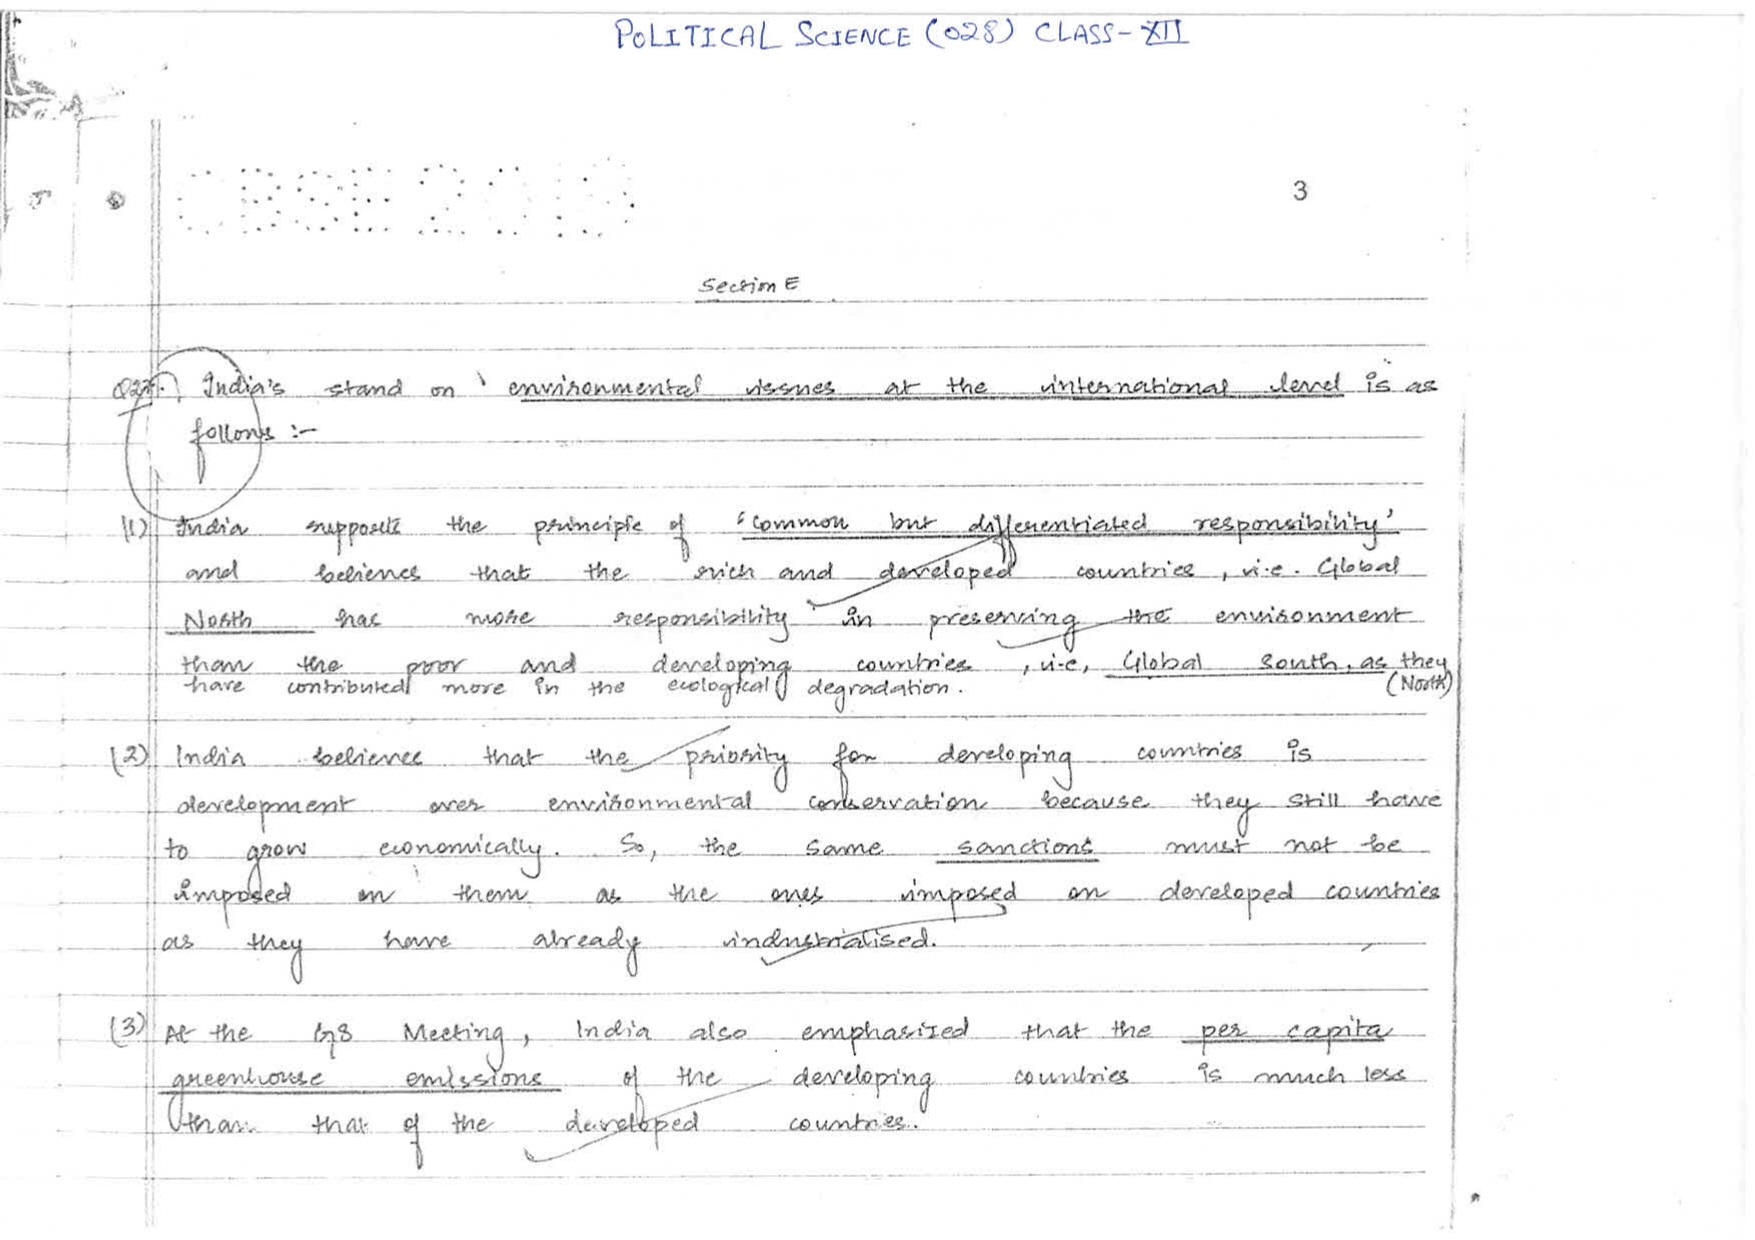 POLITICAL SCIENCE (028) CLASS-XII
CBSE 2019
3
Section E
India's stand on environmental issues at the international level is as
follows :-
(1) India supports the principle of 'common but differentiated responsibility'
and believes that the rich and developed countries, i.e. Global
North has more responsibility in preserving the environment
than the poor and developing countries, i.e, Global South, as they
(North)
have contributed more in the ecological degradation.
(2) India believes that the priority for developing countries is
development over environmental conservation because they still have
to grow economically. So, the same sanctions must not be
imposed on them as the ones imposed on developed countries
as they have already industrialised.
(3) At the G8 Meeting, India also emphasized that the per capita
greenhouse emissions of the developing countries is much less
than that of the developed countries.